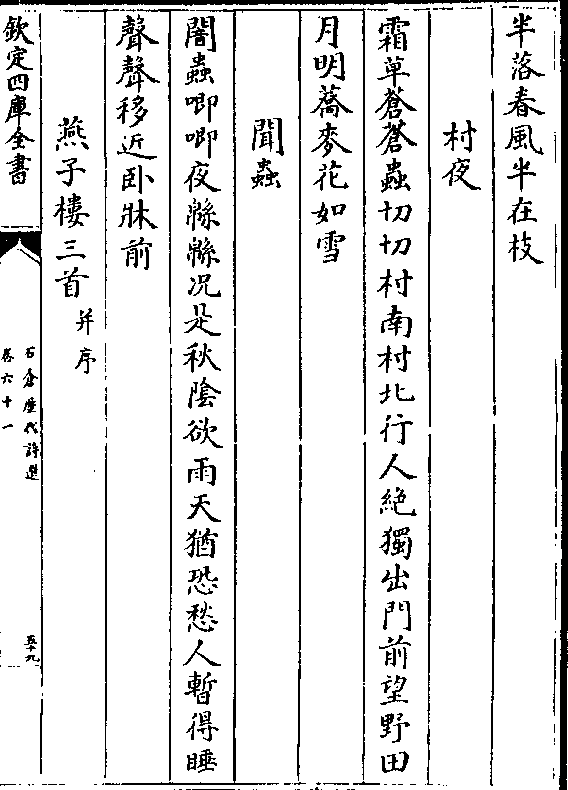 半落春風半在枝
村夜
霜草蒼蒼蟲切切村南村北行人絶獨出門前望野田
月明蕎麥花如雪
聞蟲
闇蟲唧唧夜緜緜况是秋陰欲雨天猶恐愁人暫得睡
聲聲移近卧牀前
燕子樓三首并序
欽定四庫全書
石倉歴代詩選
卷六十一
五十九